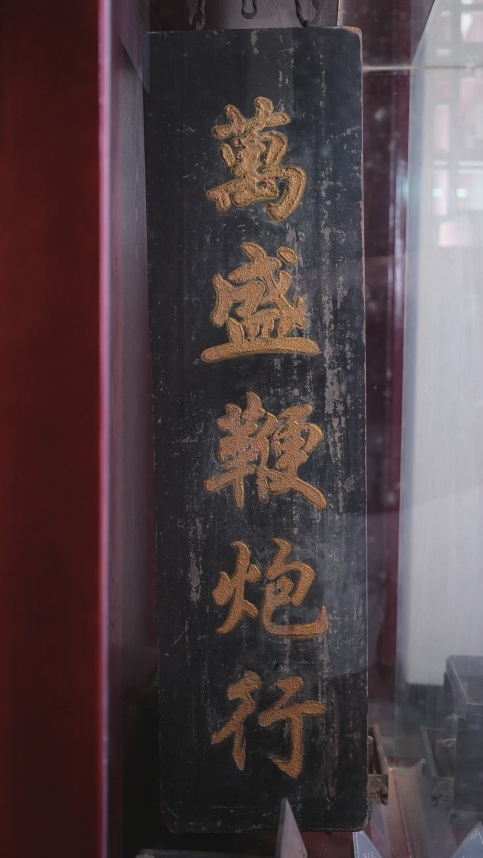 萬盛鞭炮行